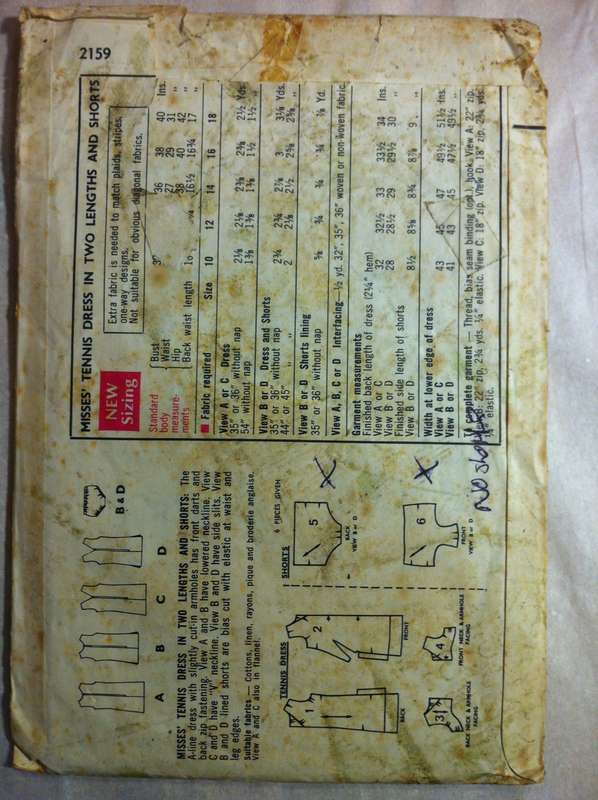 2159
MISSES' TENNIS DRESS IN TWO LENGTHS AND SHORTS
NEW
Sizing
Extra fabric is needed to match plaids, stripes,
one-way designs.
Not suitable for obvious diagonal fabrics.
Standard
body
measure-
ments
Bust 36 38 40 Ins.
Waist 27 29 31 "
Hip 38 40 42 "
Back waist length 16½ 16¾ 17 "
Fabric required Size 10 12 14 16 18
View A or C Dress
35" or 36" without nap 2⅛ 2⅛ 2⅜ 2⅜ 2½ Yds.
54" without nap 1⅜ 1⅜ 1⅜ 1½ 1½ "
View B or D Dress and Shorts
35" or 36" without nap 2¾ 2¾ 2⅞ 3 3⅛ Yds.
44" or 45" " " 2 2⅛ 2½ 2⅝ 2⅝ "
View B or D Shorts lining
35" or 36" without nap ⅝ ¾ ¾ ¾ ⅞ Yd.
View A, B, C or D Interfacing—½ yd. 32", 35", 36" woven or non-woven fabric.
Garment measurements
Finished back length of dress (2¼" hem)
View A or C 32 32½ 33 33½ 34 Ins.
View B or D 28 28½ 29 29½ 30 "
Finished side length of shorts
View B or D 8½ 8⅝ 8¾ 8⅞ 9 "
Width at lower edge of dress
View A or C 43 45 47 49½ 51½ Ins.
View B or D 41 43 45 47½ 49½ "
complete garment — Thread, bias seam binding (opt.), hook. View A: 22" zip.
22" zip, 2¾ yds. ¼" elastic. View C: 18" zip. View D: 18" zip, 2¾ yds.
¼" elastic.
No shorts
A B C D B & D
MISSES' TENNIS DRESS IN TWO LENGTHS AND SHORTS: The
A-line dress with slightly cut-in armholes has front darts and
back zip fastening. View A and B have lowered neckline. View
C and D have "V" neckline. View B and D have side slits. View
B and D lined shorts are bias cut with elastic at waist and
leg edges.
Suitable fabrics — Cottons, linen, rayons, pique and broderie anglaise.
View A and C also in flannel.
6 PIECES GIVEN
TENNIS DRESS
SHORTS
1
BACK
2
FRONT
3
BACK NECK & ARMHOLE
FACING
4
FRONT NECK & ARMHOLE
FACING
5
BACK
VIEW B or D
X
6
FRONT
VIEW B or D
X